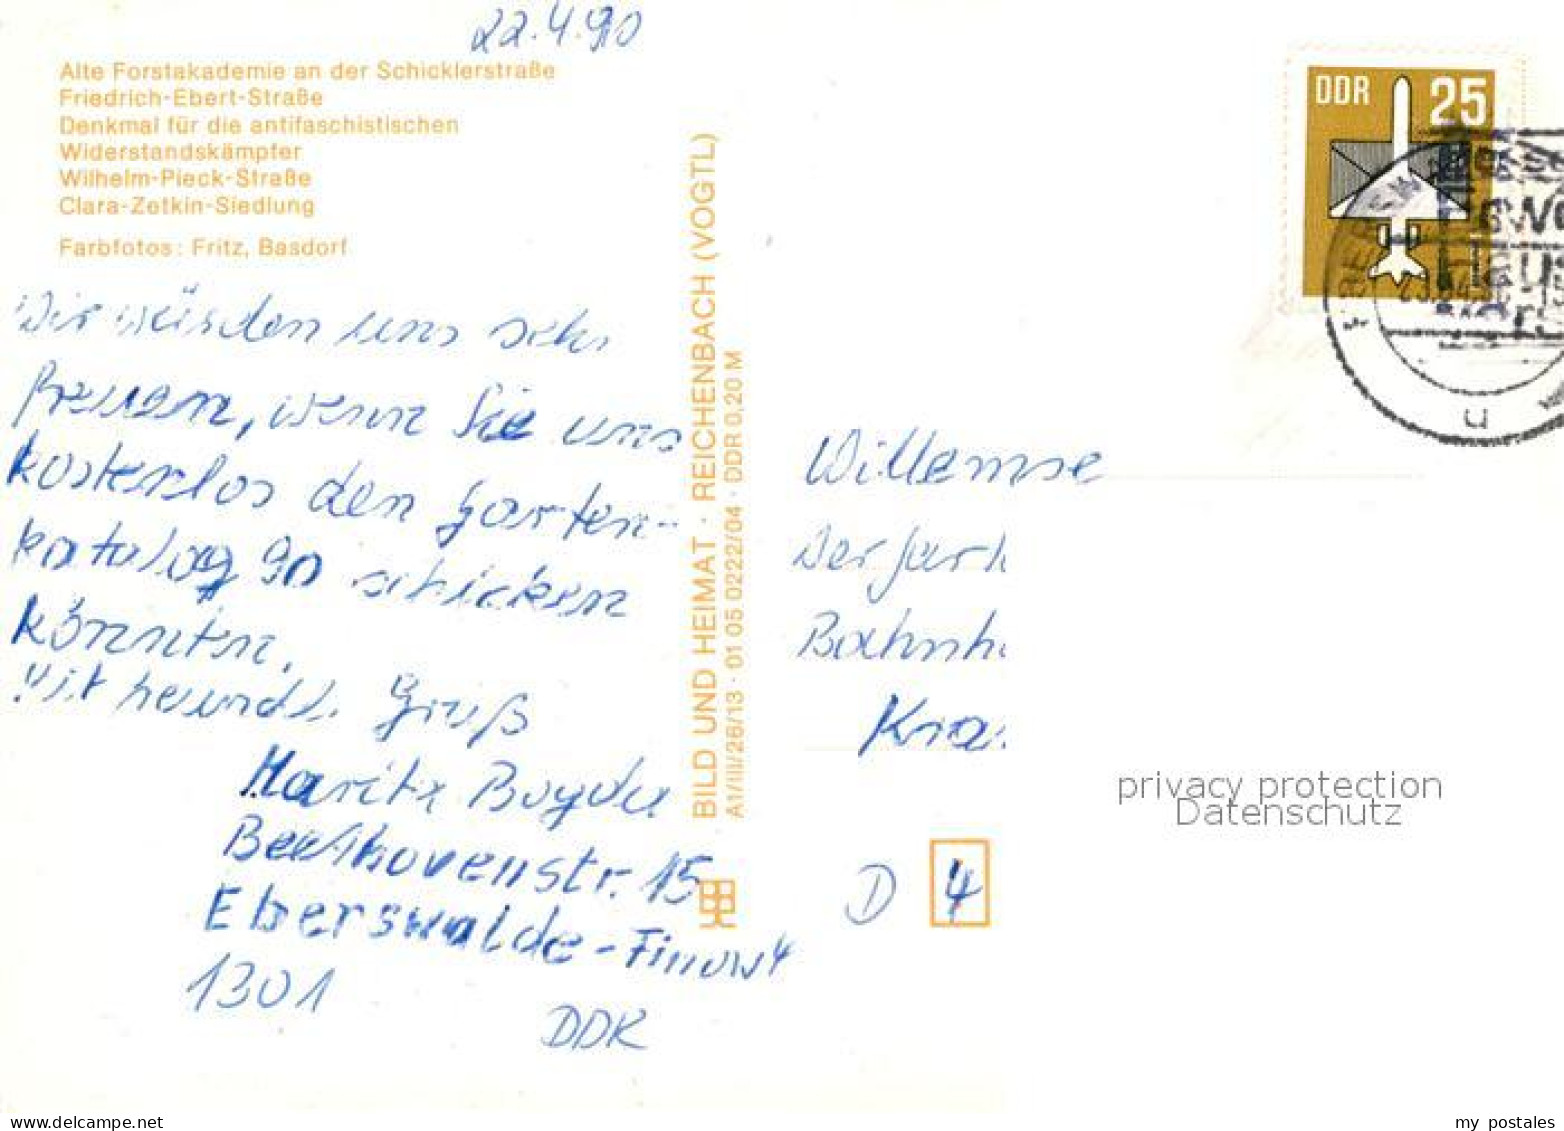 22.4.90
Alte Forstakademie an der Schicklerstraße
Friedrich-Ebert-Straße
Denkmal für die antifaschistischen
Widerstandskämpfer
Wilhelm-Pieck-Straße
Clara-Zetkin-Siedlung
Farbfotos: Fritz, Basdorf
Wir würden uns sehr
freuen, wenn Sie uns
kostenlos den Garten-
katalog 90 schicken
könnten.
Mit freundl. Gruß
Marita
Beethovenstr. 15
Eberswalde-Finow 4
1301
DDR
BILD UND HEIMAT · REICHENBACH (VOGTL)
A1/III/26/13 · 01 05 0222/04 · DDR 0,20 M
DDR 25
Willemse
Bahnh
Kra
D 4
privacy protection
Datenschutz
my postales